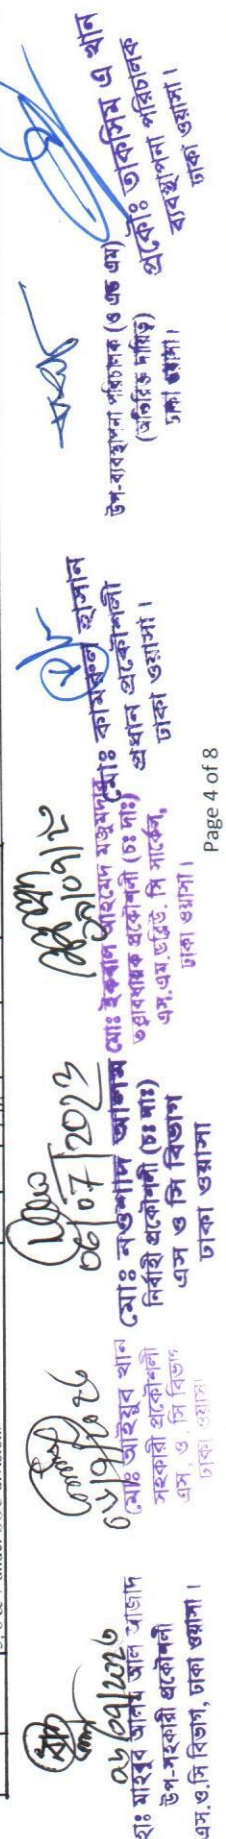 ০৬/০৭/২০২৩
মাহবুব আলম আল আজাদ
উপ-সহকারী প্রকৌশলী
এস.ও.সি বিভাগ, ঢাকা ওয়াসা।
মোঃ আইয়ুব খান
সহকারী প্রকৌশলী
এস, ও, সি বিভাগ
ঢাকা ওয়াসা
06/07/2023
মোঃ নওশাদ আলম
নির্বাহী প্রকৌশলী (চঃ দাঃ)
এস ও সি বিভাগ
ঢাকা ওয়াসা
মোঃ ইকবাল আহমেদ মজুমদার
তত্ত্বাবধায়ক প্রকৌশলী (চঃ দাঃ)
এস,এম,ডব্লিউ, সি সার্কেল,
ঢাকা ওয়াসা।
মোঃ কামরুল হাসান
প্রধান প্রকৌশলী
ঢাকা ওয়াসা।
উপ-ব্যবস্থাপনা পরিচালক (ও এন্ড এম)
(অতিরিক্ত দায়িত্ব)
ঢাকা ওয়াসা।
প্রকৌঃ তাকসিম এ খান
ব্যবস্থাপনা পরিচালক
ঢাকা ওয়াসা।
Page 4 of 8